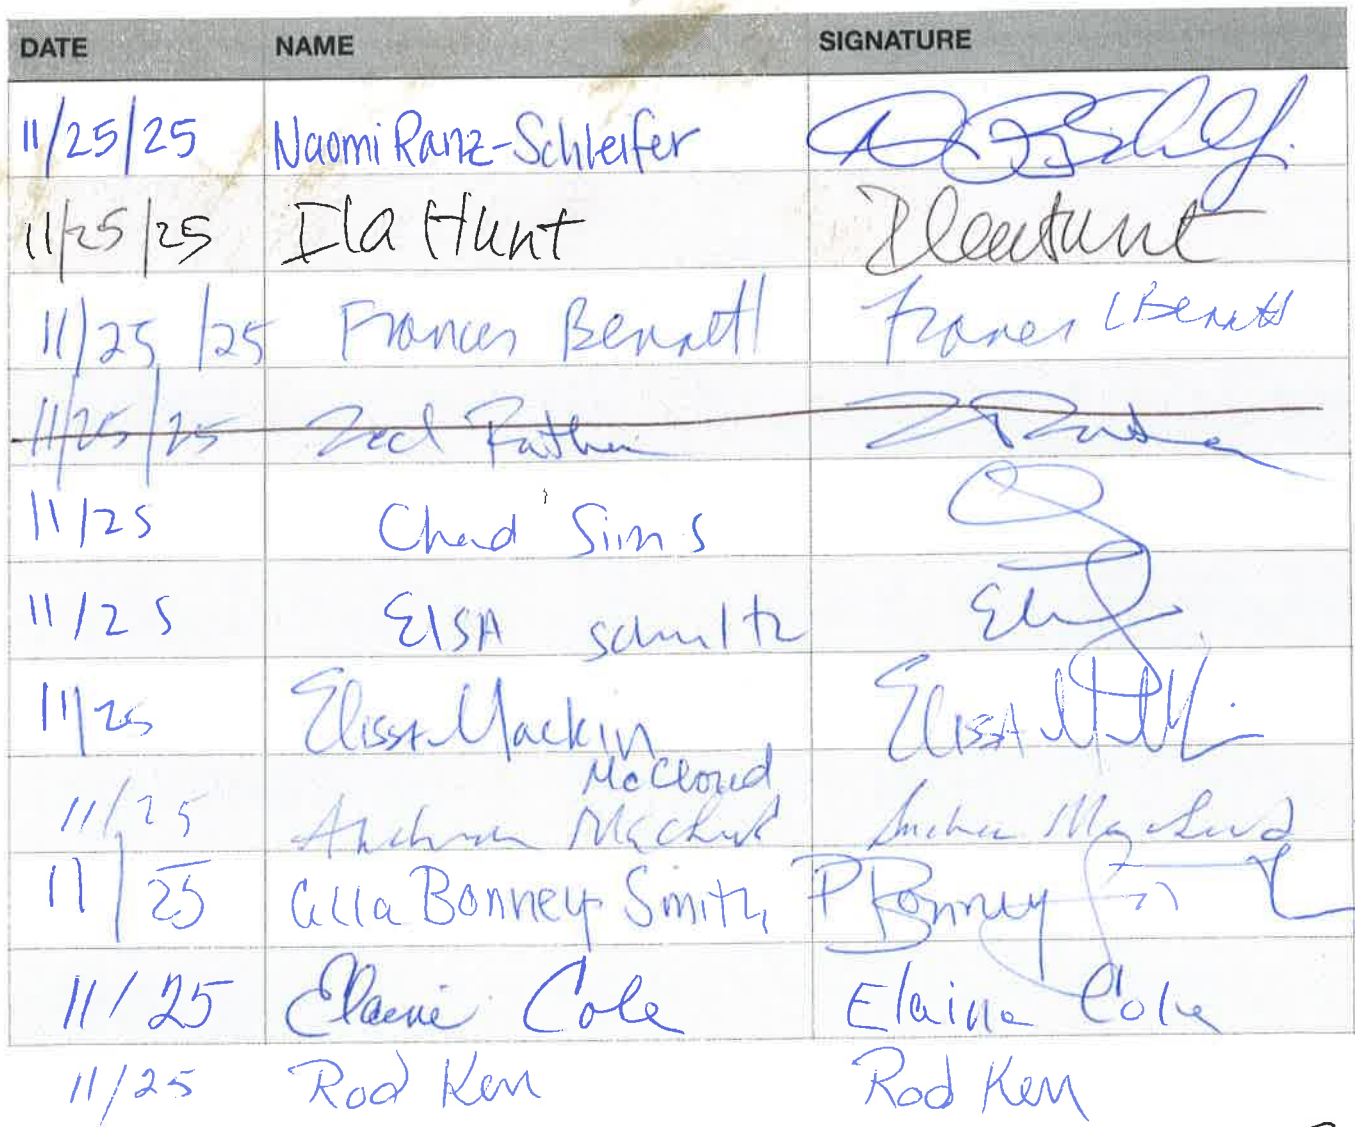 DATE NAME SIGNATURE
11/25/25 Naomi Ranz-Schleifer
11/25/25 Ila Hunt Ila Hunt
11/25/25 Frances Bennett Frances Bennett
11/25/25
11/25 Chad Sims
11/25 Elsa Schultz
11/25 Elissa Mackin Elissa
McCloud
11/25
11/25 Bonney Smith P Bonney
11/25 Elaine Cole Elaine Cole
11/25 Rod Kerr Rod Kerr